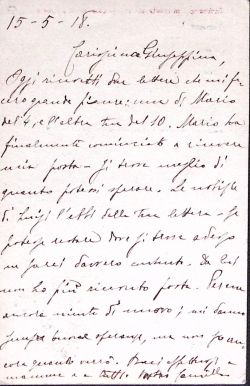 15-5-18.
Carissima Giuseppina,
Oggi ricevetti due lettere che mi fe-
cero grande piacere: una di Mario
del 4, e l'altra tua del 10. Mario ha
finalmente cominciato a ricevere
mia posta - si trova meglio di
quanto potessi sperare. Le notizie
di Luigi l'ebbi dalla tua lettera - Se
potesse restare dove si trova adesso
ne sarei davvero contento. Da lui
non ho più ricevuto posta.
ancora niente di nuovo; mi danno
sempre buone speranze, ma non so an-
cora quando verrò. Baci affettuosi a
mamma e a tutti. Vostro